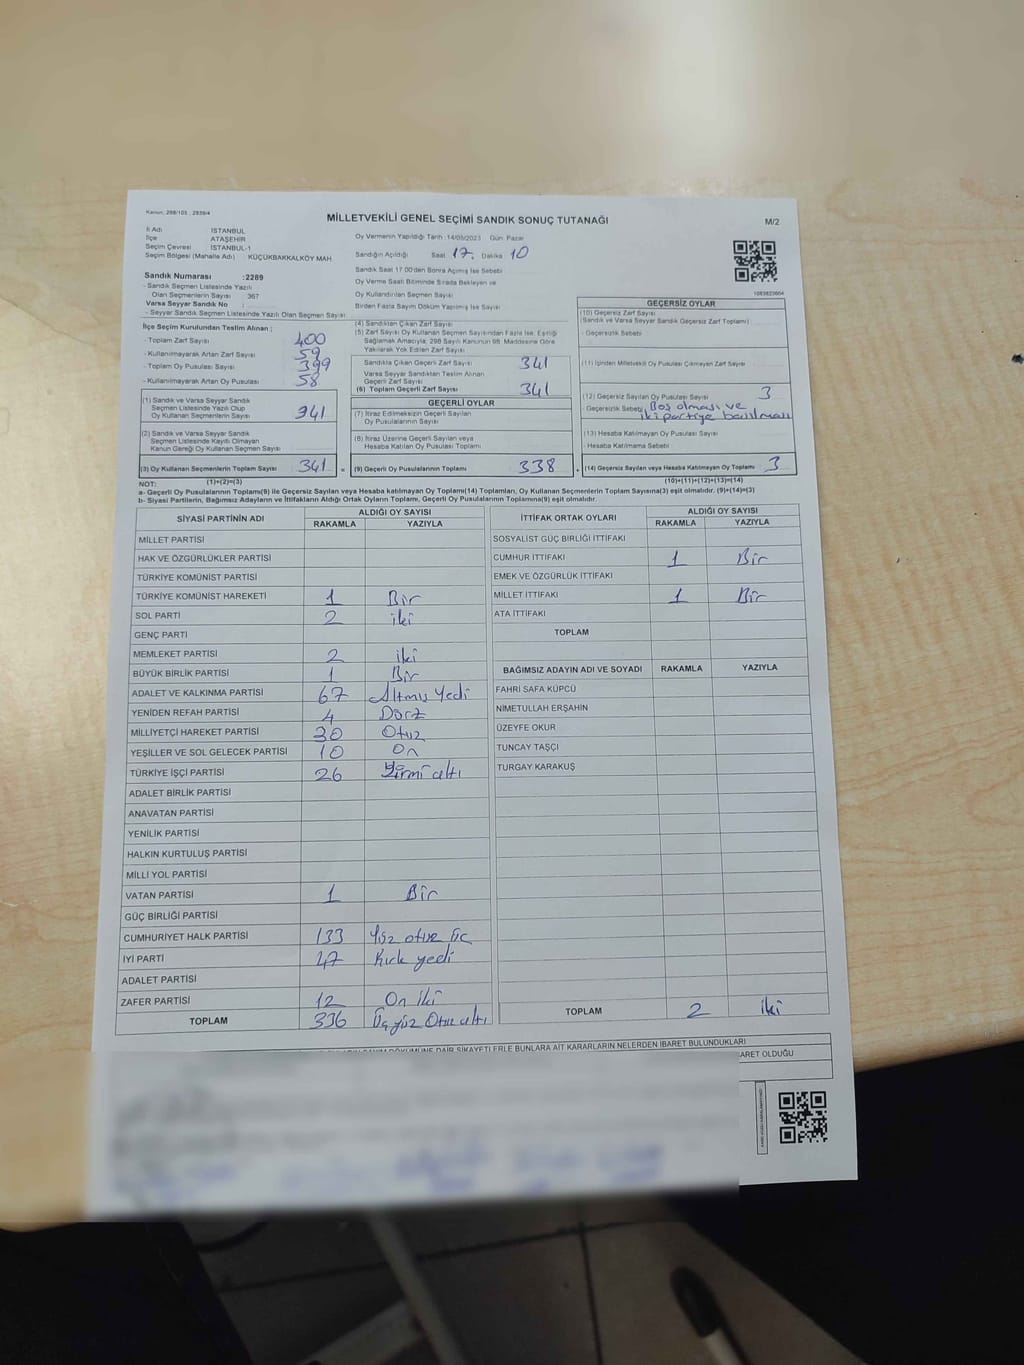 Kanun: 298/105 ; 2839/4
MİLLETVEKİLİ GENEL SEÇİMİ SANDIK SONUÇ TUTANAĞI
M/2
İl Adı İSTANBUL
İlçe ATAŞEHİR
Seçim Çevresi İSTANBUL-1
Seçim Bölgesi (Mahalle Adı) KÜÇÜKBAKKALKÖY MAH
Sandık Numarası :2289
- Sandık Seçmen Listesinde Yazılı
Olan Seçmenlerin Sayısı 367
Varsa Seyyar Sandık No :
- Seyyar Sandık Seçmen Listesinde Yazılı Olan Seçmen Sayısı
İlçe Seçim Kurulundan Teslim Alınan ;
- Toplam Zarf Sayısı 400
- Kullanılmayarak Artan Zarf Sayısı 59
- Toplam Oy Pusulası Sayısı 399
- Kullanılmayarak Artan Oy Pusulası 58
(1) Sandık ve Varsa Seyyar Sandık
Seçmen Listesinde Yazılı Olup
Oy Kullanan Seçmenlerin Sayısı 341
(2) Sandık ve Varsa Seyyar Sandık
Seçmen Listesinde Kayıtlı Olmayan
Kanun Gereği Oy Kullanan Seçmen Sayısı
(3) Oy Kullanan Seçmenlerin Toplam Sayısı 341
(1)+(2)=(3)
Oy Vermenin Yapıldığı Tarih :14/05/2023 Gün: Pazar
Sandığın Açıldığı Saat 17. Dakika 10
Sandık Saat 17.00'den Sonra Açılmış İse Sebebi
Oy Verme Saati Bitiminde Sırada Bekleyen ve
Oy Kullandırılan Seçmen Sayısı
Birden Fazla Sayım Döküm Yapılmış İse Sayısı
(4) Sandıktan Çıkan Zarf Sayısı
(5) Zarf Sayısı Oy Kullanan Seçmen Sayısından Fazla İse, Eşitliği
Sağlamak Amacıyla, 298 Sayılı Kanunun 98. Maddesine Göre
Yakılarak Yok Edilen Zarf Sayısı
Sandıkta Çıkan Geçerli Zarf Sayısı 341
Varsa Seyyar Sandıktan Teslim Alınan
Geçerli Zarf Sayısı
(6) Toplam Geçerli Zarf Sayısı 341
GEÇERLİ OYLAR
(7) İtiraz Edilmeksizin Geçerli Sayılan
Oy Pusulalarının Sayısı
(8) İtiraz Üzerine Geçerli Sayılan veya
Hesaba Katılan Oy Pusulası Toplamı
= (9) Geçerli Oy Pusulalarının Toplamı 338
1083823604
GEÇERSİZ OYLAR
(10) Geçersiz Zarf Sayısı
(Sandık ve Varsa Seyyar Sandık Geçersiz Zarf Toplamı)
- Geçersizlik Sebebi
(11) İçinden Milletvekili Oy Pusulası Çıkmayan Zarf Sayısı
(12) Geçersiz Sayılan Oy Pusulası Sayısı 3
- Geçersizlik Sebebi Boş olması ve
iki partiye basılması
(13) Hesaba Katılmayan Oy Pusulası Sayısı
- Hesaba Katılmama Sebebi
+ (14) Geçersiz Sayılan veya Hesaba Katılmayan Oy Toplamı 3
(10)+(11)+(12)+(13)=(14)
NOT:
a- Geçerli Oy Pusulalarının Toplamı(9) ile Geçersiz Sayılan veya Hesaba katılmayan Oy Toplamı(14) Toplamları, Oy Kullanan Seçmenlerin Toplam Sayısına(3) eşit olmalıdır. (9)+(14)=(3)
b- Siyasi Partilerin, Bağımsız Adayların ve İttifakların Aldığı Ortak Oyların Toplamı, Geçerli Oy Pusulalarının Toplamına(9) eşit olmalıdır.
SİYASİ PARTİNİN ADI ALDIĞI OY SAYISI
RAKAMLA YAZIYLA
MİLLET PARTİSİ
HAK VE ÖZGÜRLÜKLER PARTİSİ
TÜRKİYE KOMÜNİST PARTİSİ
TÜRKİYE KOMÜNİST HAREKETİ 1 Bir
SOL PARTİ 2 iki
GENÇ PARTİ
MEMLEKET PARTİSİ 2 iki
BÜYÜK BİRLİK PARTİSİ 1 Bir
ADALET VE KALKINMA PARTİSİ 67 Altmış Yedi
YENİDEN REFAH PARTİSİ 4 Dört
MİLLİYETÇİ HAREKET PARTİSİ 30 Otuz
YEŞİLLER VE SOL GELECEK PARTİSİ 10 On
TÜRKİYE İŞÇİ PARTİSİ 26 Yirmi altı
ADALET BİRLİK PARTİSİ
ANAVATAN PARTİSİ
YENİLİK PARTİSİ
HALKIN KURTULUŞ PARTİSİ
MİLLİ YOL PARTİSİ
VATAN PARTİSİ 1 Bir
GÜÇ BİRLİĞİ PARTİSİ
CUMHURİYET HALK PARTİSİ 133 Yüz otuz üç
İYİ PARTİ 47 Kırk yedi
ADALET PARTİSİ
ZAFER PARTİSİ 12 On iki
TOPLAM 336 Üç yüz Otuz altı
İTTİFAK ORTAK OYLARI ALDIĞI OY SAYISI
RAKAMLA YAZIYLA
SOSYALİST GÜÇ BİRLİĞİ İTTİFAKI
CUMHUR İTTİFAKI 1 Bir
EMEK VE ÖZGÜRLÜK İTTİFAKI
MİLLET İTTİFAKI 1 Bir
ATA İTTİFAKI
TOPLAM
BAĞIMSIZ ADAYIN ADI VE SOYADI RAKAMLA YAZIYLA
FAHRİ SAFA KÜPCÜ
NİMETULLAH ERŞAHİN
ÜZEYFE OKUR
TUNCAY TAŞÇI
TURGAY KARAKUŞ
TOPLAM 2 iki
DAİR ŞİKAYETLERLE BUNLARA AİT KARARLARIN NELERDEN İBARET BULUNDUKLARI
OLDUĞU